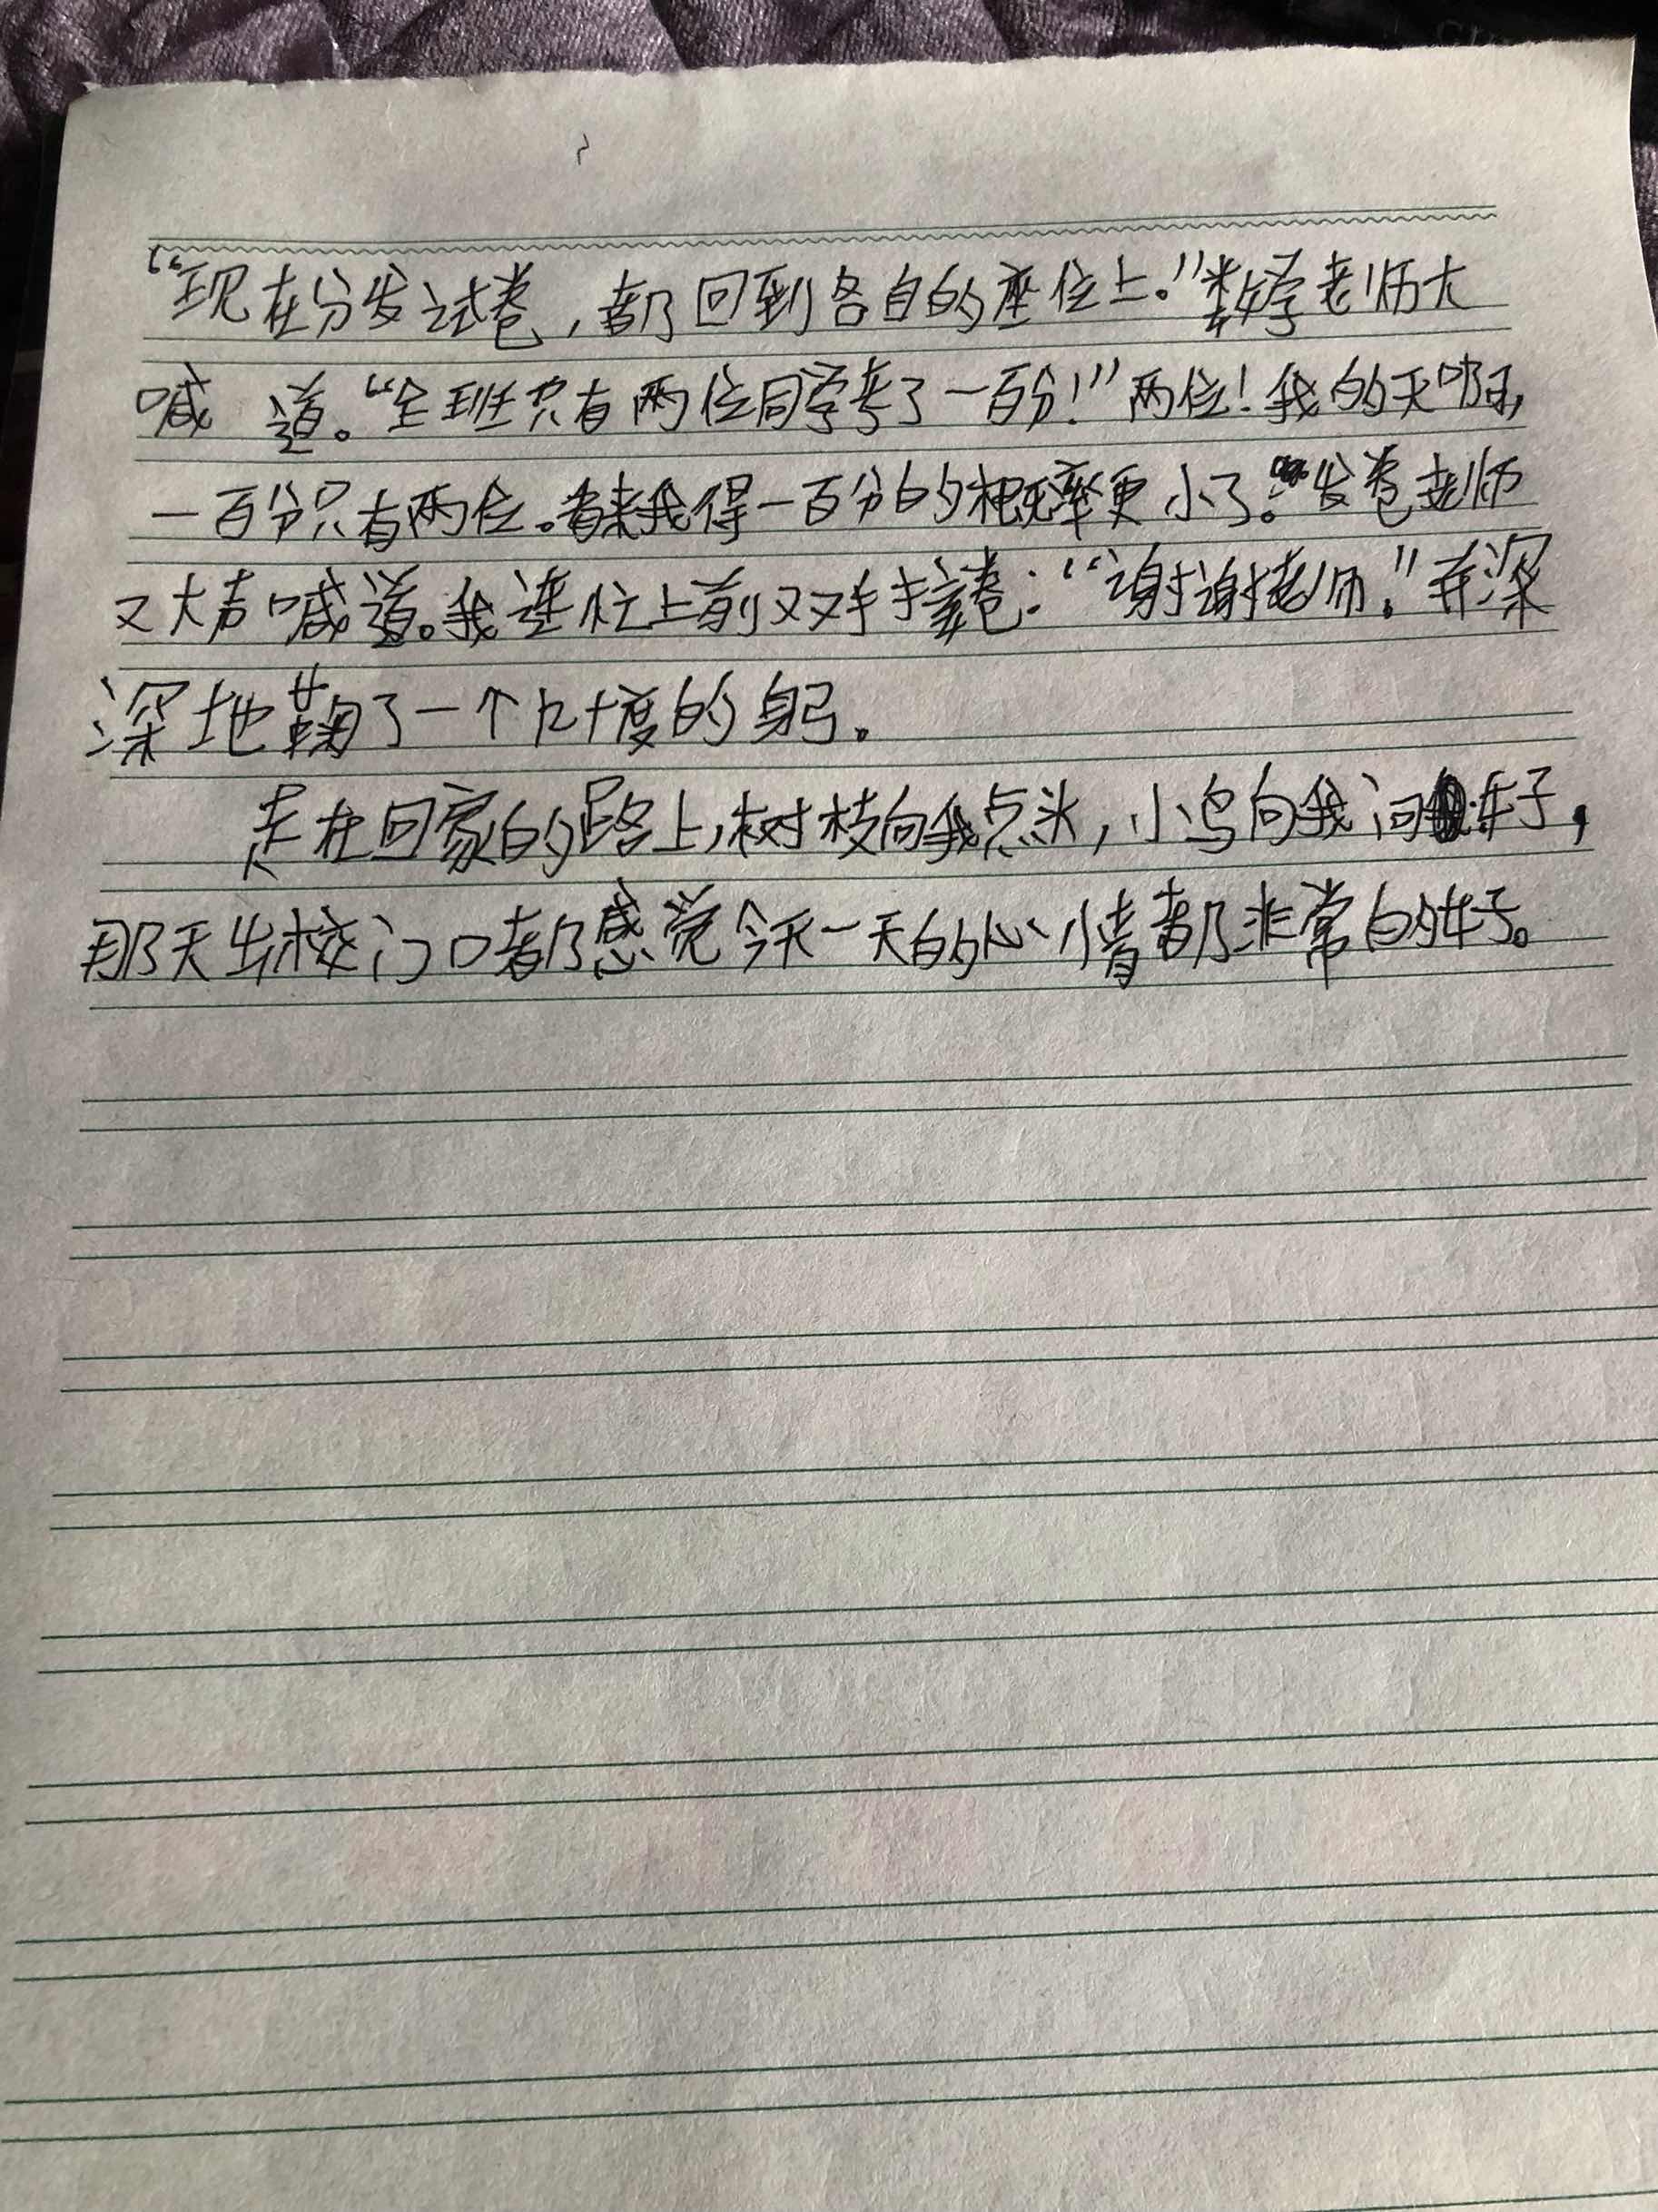 “现在分发试卷，都回到各自的座位上。”数学老师大
喊道。“全班只有两位同学考了一百分！”两位！我的天啊，
一百分只有两位。看来我得一百分的概率更小了。“发卷老师
又大声喊道。我连忙上前双手接卷：“谢谢老师。”并深
深地鞠了一个几十度的躬。
走在回家的路上，树枝向我点头，小鸟向我问好，
那天出校门口都感觉今天一天的心情都非常的好。